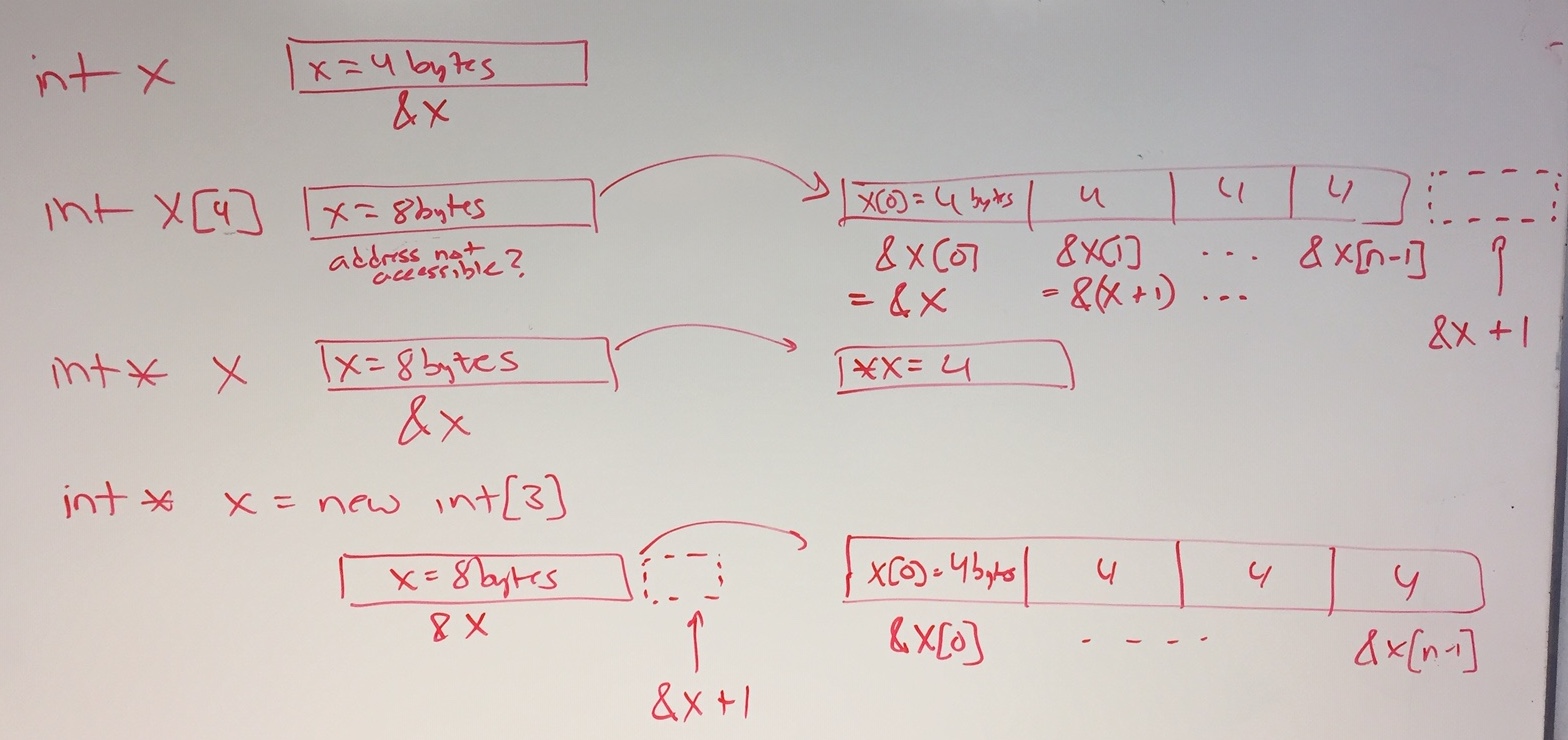 int x
x = 4 bytes
&x
int x[4]
x = 8 bytes
address not
accessible?
x[0] = 4 bytes 4 4 4
&x[0] &x[1] ... &x[n-1]
= &x = &(x+1) ...
&x + 1
int * x
x = 8 bytes
&x
*x = 4
int * x = new int[3]
x = 8 bytes
&x
&x + 1
x[0] = 4 bytes 4 4 4
&x[0] - - - - &x[n-1]